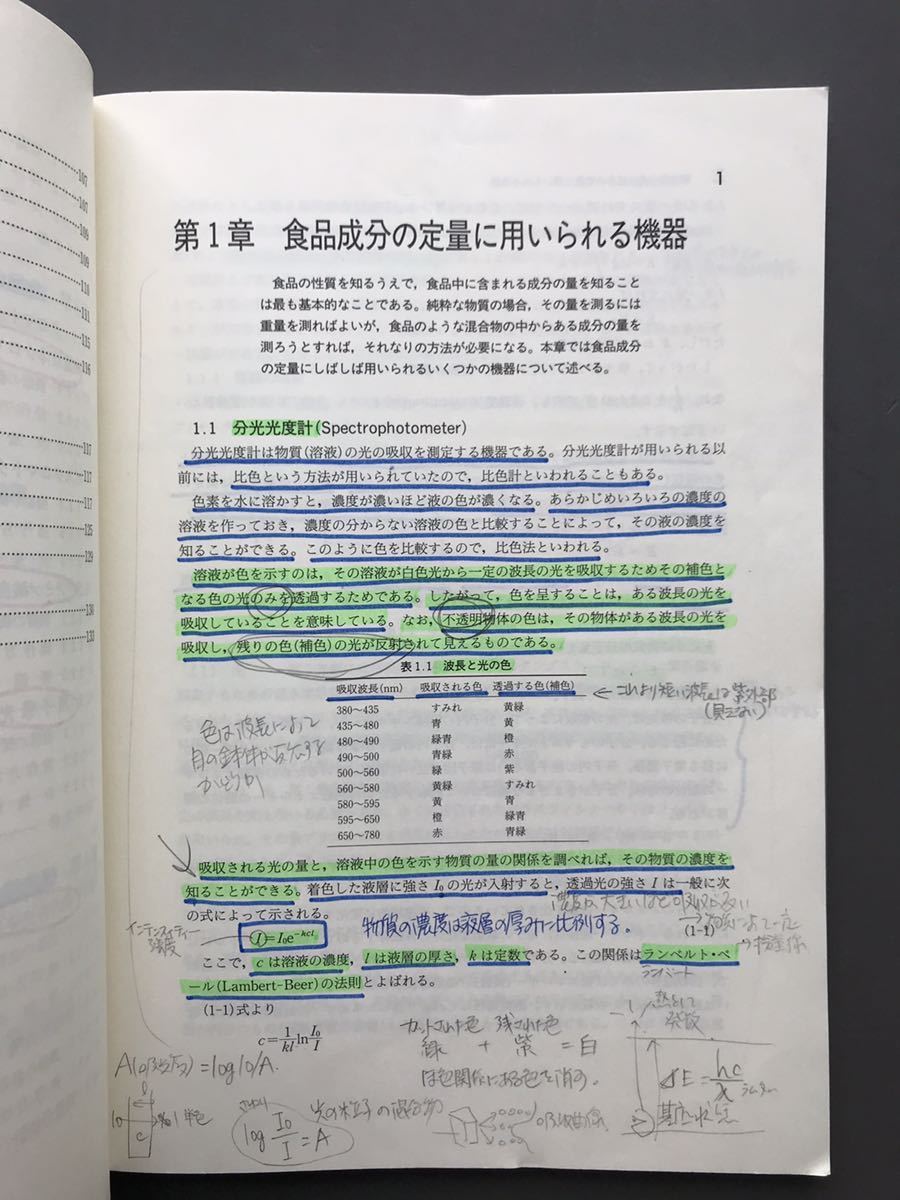 107
107
109
109
110
111
115
116
117
117
117
125
129
130
133
1
第1章 食品成分の定量に用いられる機器
食品の性質を知るうえで，食品中に含まれる成分の量を知ること
は最も基本的なことである。純粋な物質の場合，その量を測るには
重量を測ればよいが，食品のような混合物の中からある成分の量を
測ろうとすれば，それなりの方法が必要になる。本章では食品成分
の定量にしばしば用いられるいくつかの機器について述べる。
1.1 分光光度計(Spectrophotometer)
分光光度計は物質(溶液)の光の吸収を測定する機器である。分光光度計が用いられる以
前には，比色という方法が用いられていたので，比色計といわれることもある。
色素を水に溶かすと，濃度が濃いほど液の色が濃くなる。あらかじめいろいろの濃度の
溶液を作っておき，濃度の分からない溶液の色と比較することによって，その液の濃度を
知ることができる。このように色を比較するので，比色法といわれる。
溶液が色を示すのは，その溶液が白色光から一定の波長の光を吸収するためその補色と
なる色の光のみを透過するためである。したがって，色を呈することは，ある波長の光を
吸収していることを意味している。なお，不透明物体の色は，その物体がある波長の光を
吸収し，残りの色(補色)の光が反射されて見えるものである。
表1.1 波長と光の色
吸収波長(nm) 吸収される色 透過する色(補色)
380〜435 すみれ 黄緑
435〜480 青 黄
480〜490 緑青 橙
490〜500 青緑 赤
500〜560 緑 紫
560〜580 黄緑 すみれ
580〜595 黄 青
595〜650 橙 緑青
650〜780 赤 青緑
←これより短い波長は紫外部
(見えない)
色は波長によって
目の錐体が反応する
かどうか
吸収される光の量と，溶液中の色を示す物質の量の関係を調べれば，その物質の濃度を
知ることができる。着色した液層に強さ I₀ の光が入射すると，透過光の強さ I は一般に次
の式によって示される。
I=I₀e^{-kcl} (1-1)
物質の濃度は液層の厚みに比例する。
強度
ここで，c は溶液の濃度，l は液層の厚さ，k は定数である。この関係はランベルト・ベ
ール(Lambert-Beer)の法則とよばれる。
(1-1)式より
c=1/kl ln I₀/I
カットされた色 残された色
緑 + 紫 = 白
補色関係にある色を消す。
熱として
ΔE=hc/λ
基底状態
log I₀/I = A
単色
c